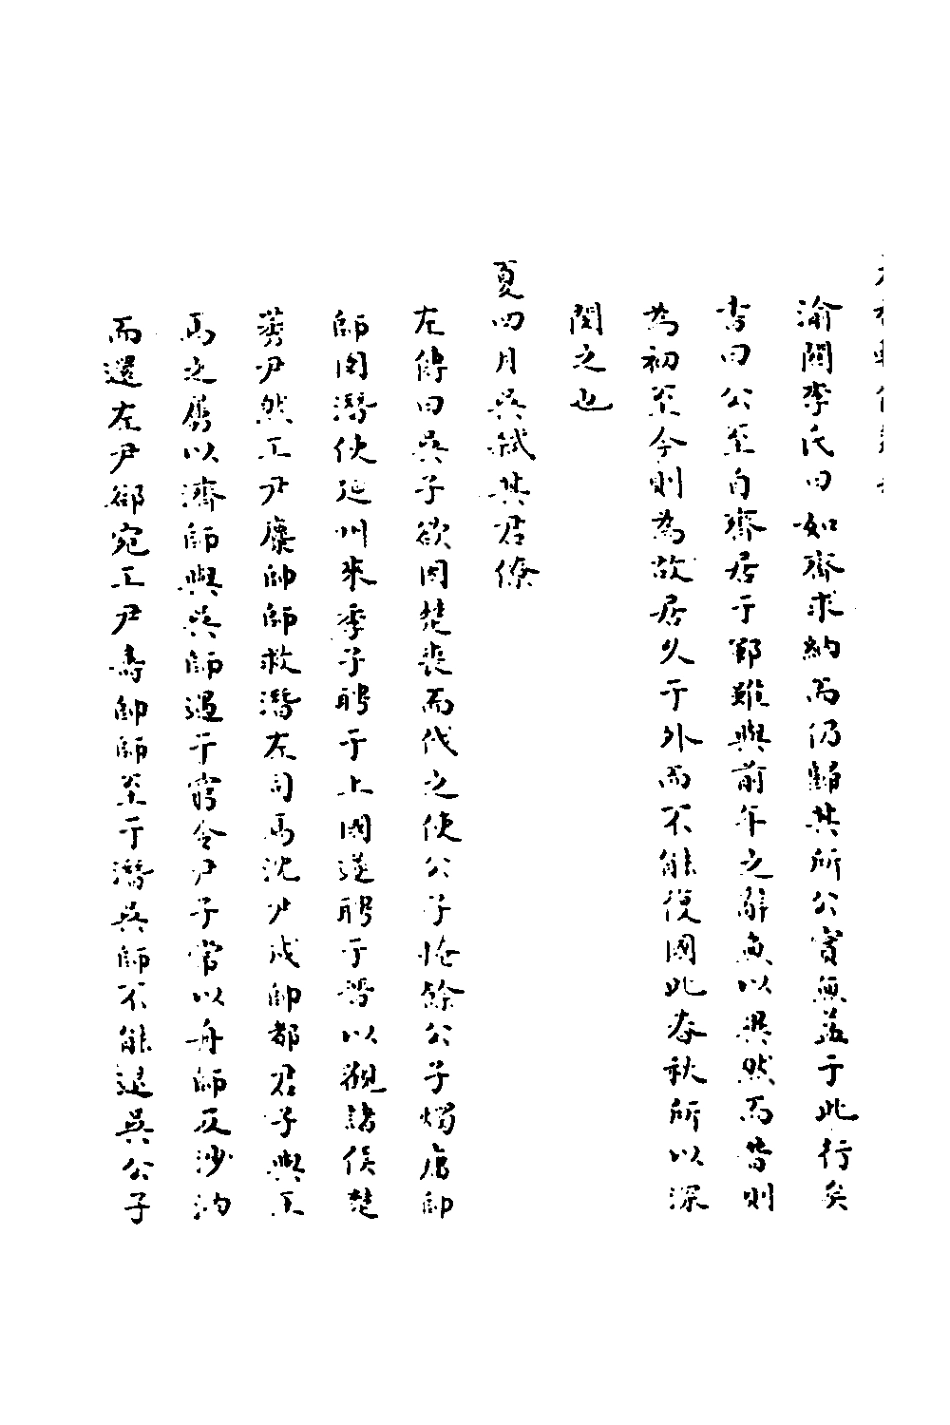 渝關李氏曰如齊求納而仍歸其所公實無益于此行矣
書曰公至自齊居于鄆雖與前年之辭無以異然而昔則
為初至今則為故居久于外而不能復國此春秋所以深
閔之也
夏四月吳弒其君僚
左傳曰吳子欲因楚喪而伐之使公子掩餘公子燭庸帥
師圍潛使延州來季子聘于上國遂聘于晉以觀諸侯楚
莠尹然工尹麇帥師救潛左司馬沈尹戌帥都君子與王
馬之屬以濟師與吳師遇于窮令尹子常以舟師及沙汭
而還左尹郤宛工尹壽帥師至于潛吳師不能退吳公子